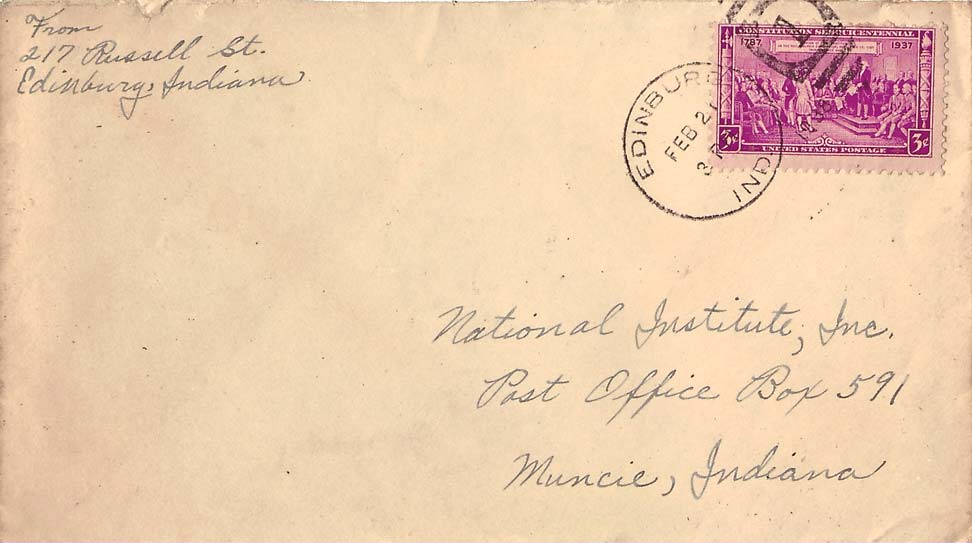 From
217 Russell St.
Edinburg, Indiana
CONSTITUTION SESQUICENTENNIAL
1787 1937
3¢ 3¢
UNITED STATES POSTAGE
EDINBURG
FEB 21
IND
National Institute, Inc.
Post Office Box 591
Muncie, Indiana